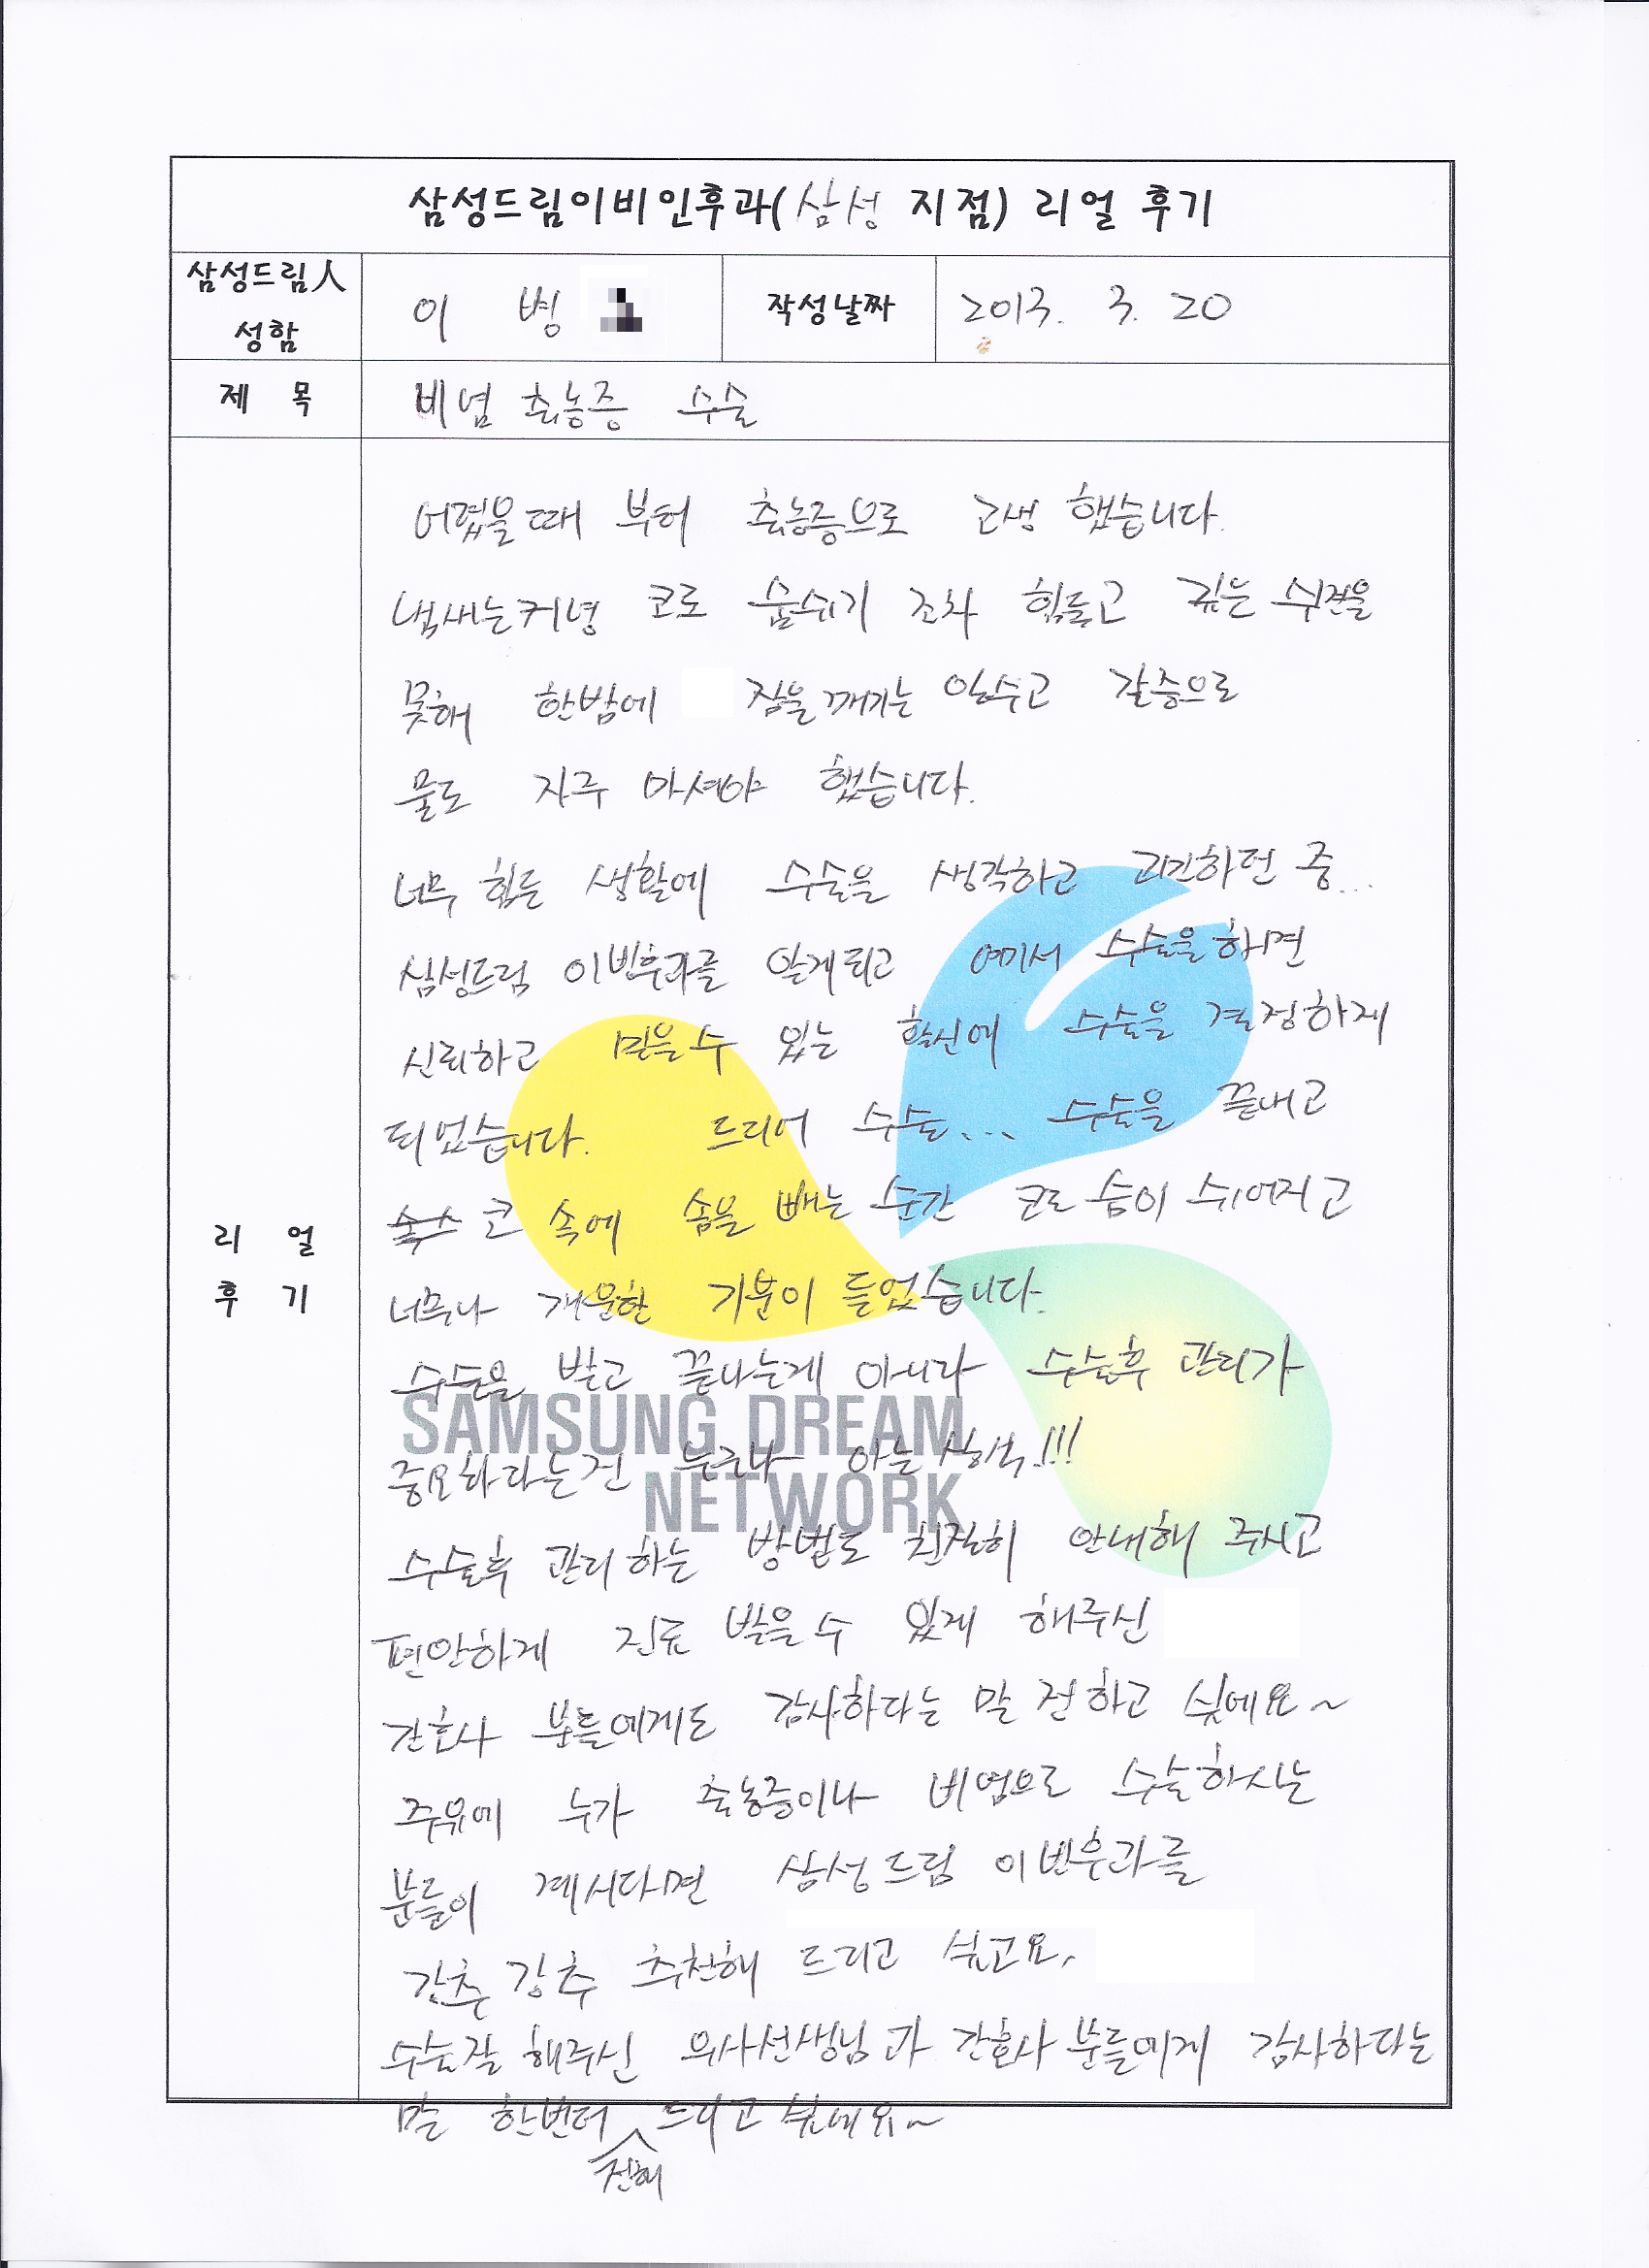 삼성드림이비인후과(삼성 지점) 리얼 후기
삼성드림人
성함
이 병
작성날짜
2013. 3. 20
제 목
비염 축농증 수술
리 얼
후 기
어렸을때 부터 축농증으로 고생 했습니다.
냄새는커녕 코로 숨쉬기 조차 힘들고 깊은 수면을
못해 한밤에 잠을 깨기는 일수고 갈증으로
물도 자주 마셔야 했습니다.
너무 힘든 생활에 수술을 생각하고 고민하던 중...
삼성드림 이빈후과를 알게되고 여기서 수술을 하면
신뢰하고 믿을수 있는 확신에 수술을 결정하게
되었습니다. 드디어 수술... 수술을 끝내고
코 속에 솜을 빼는 순간 코로 숨이 쉬어지고
너무나 개운한 기분이 들었습니다.
수술을 받고 끝나는게 아니라 수술후 관리가
중요하다는건 누구나 아는 상식!!!
수술후 관리하는 방법도 친절히 안내해 주시고
편안하게 진료 받을수 있게 해주신
간호사 분들에게도 감사하다는 말 전하고 싶에요~
주위에 누가 축농증이나 비염으로 수술하시는
분들이 계시다면 삼성드림 이빈후과를
강추 강추 추천해 드리고 싶고요.
수술잘 해주신 의사선생님과 간호사 분들에게 감사하다는
말 한번더 전해 드리고 싶네요~
SAMSUNG DREAM
NETWORK